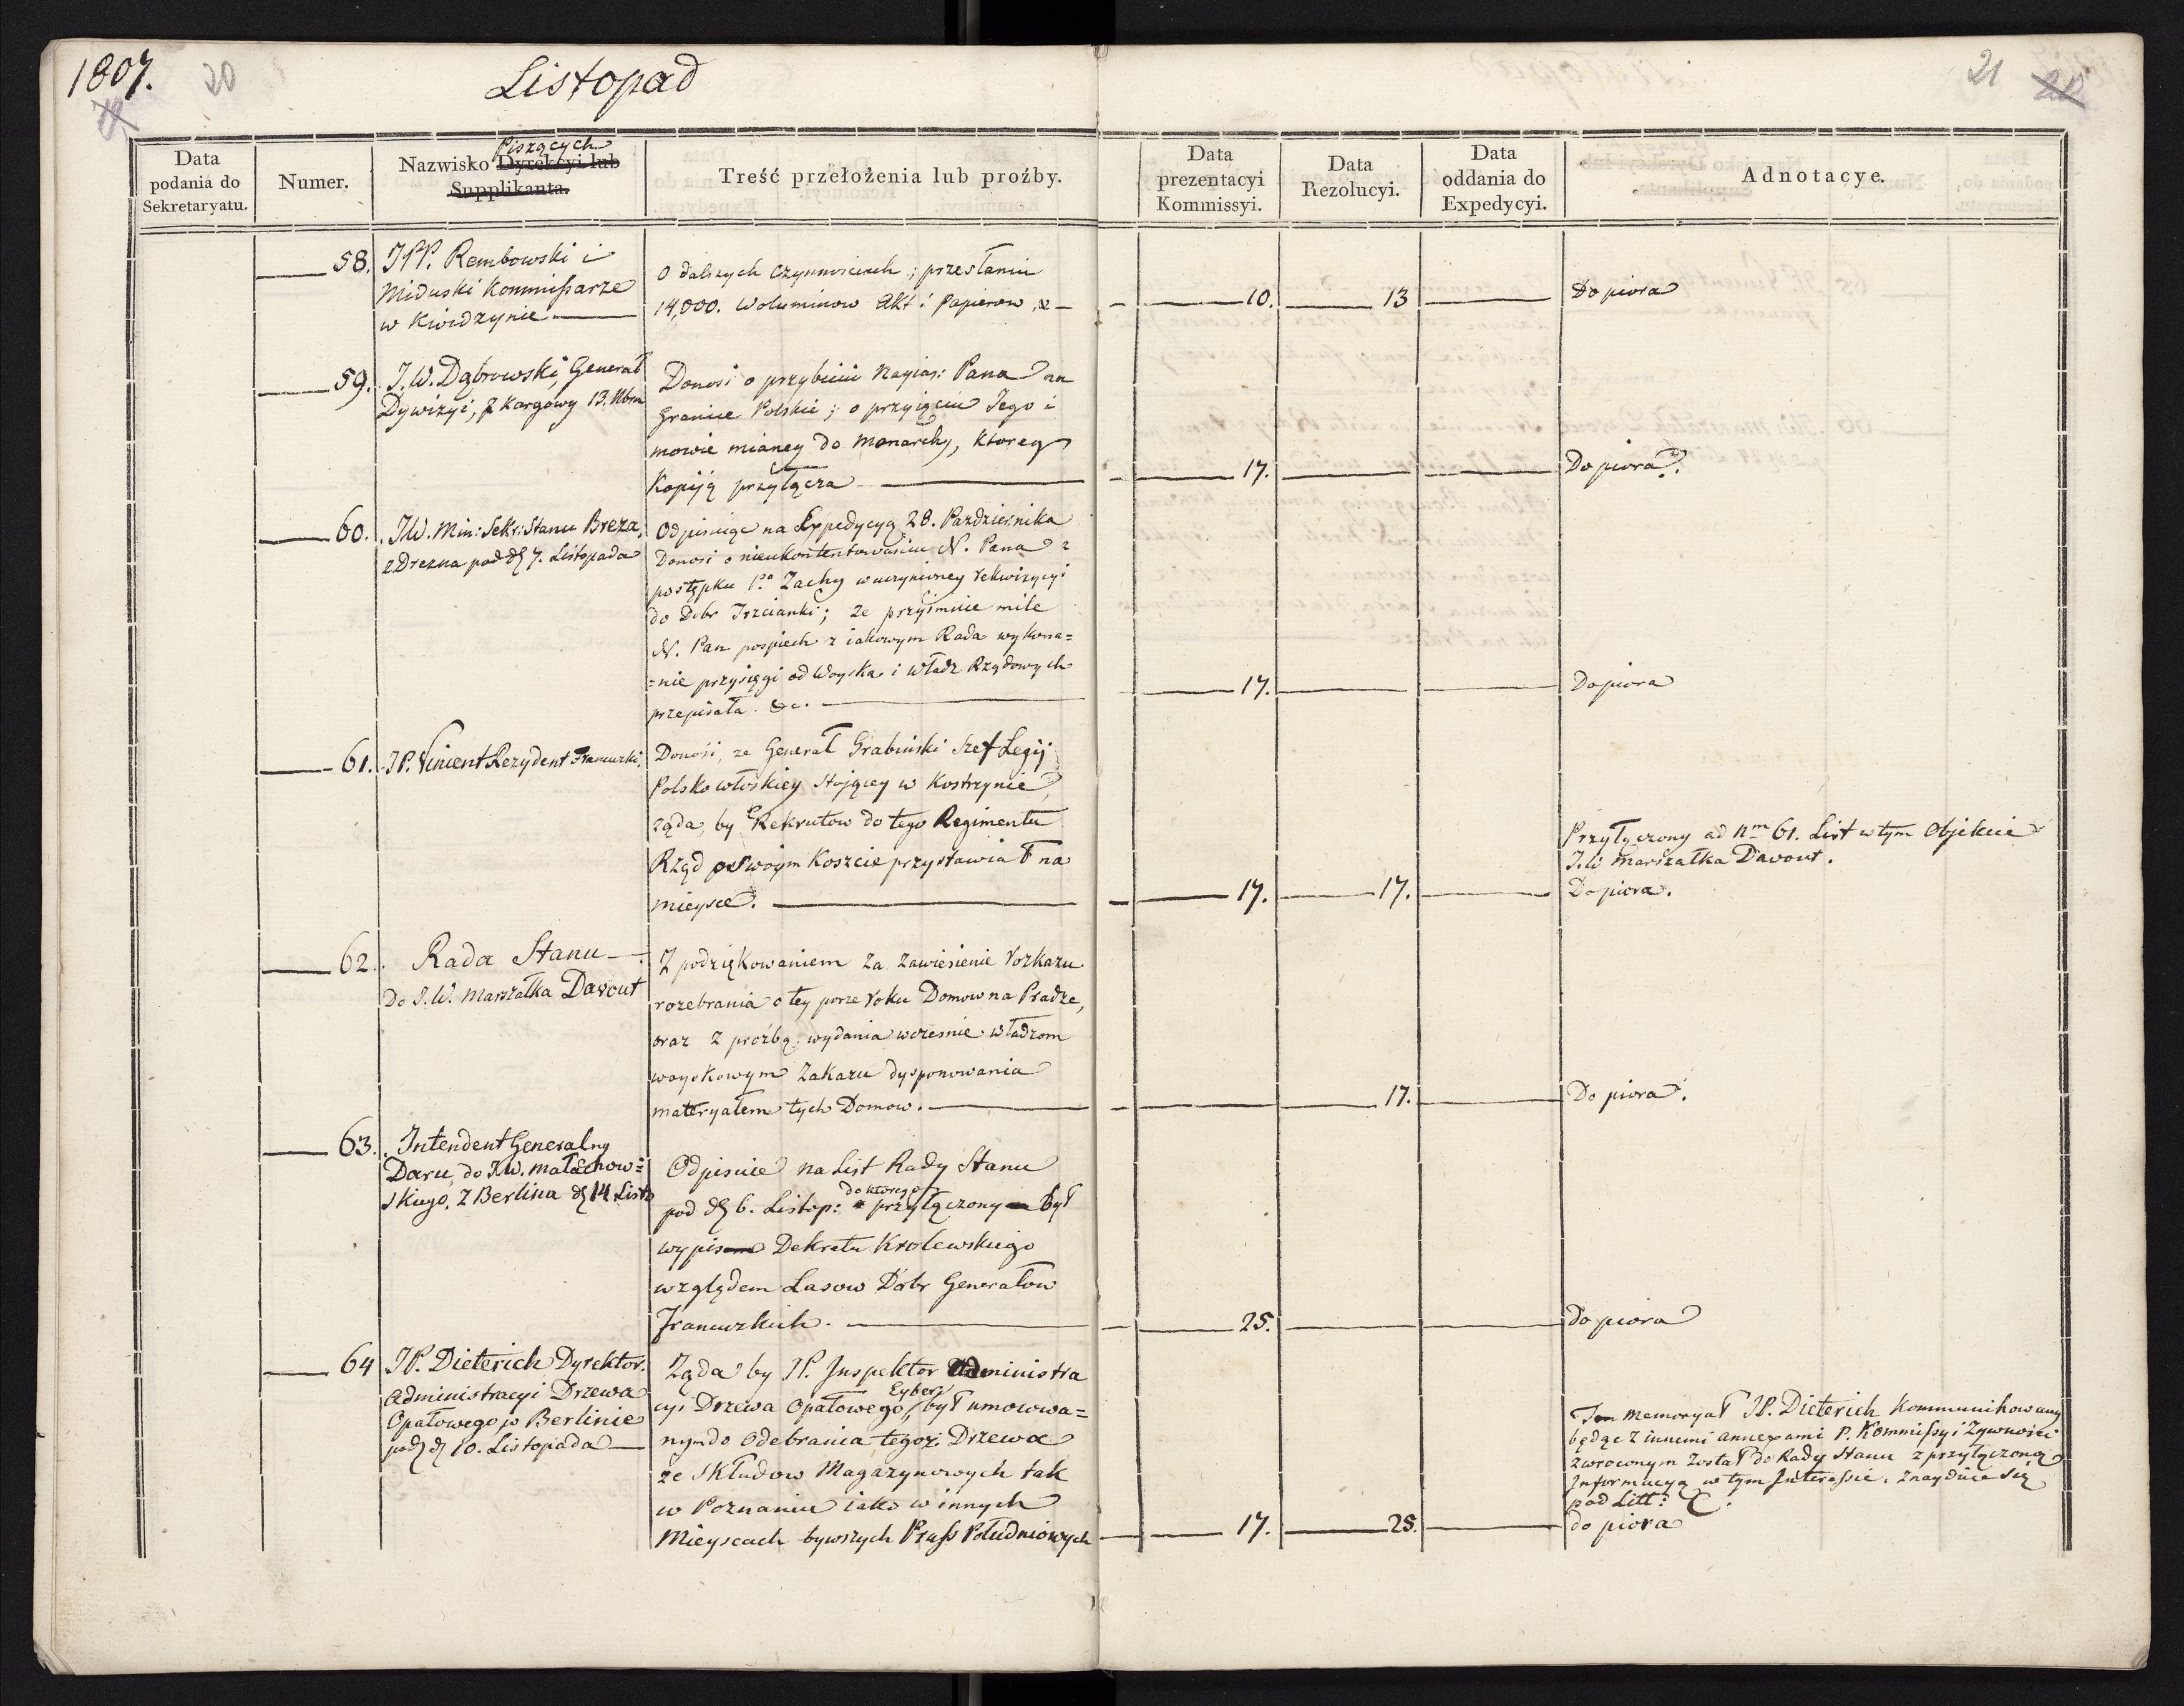 1807.
20
Listopad
21
Data podania do Sekretaryatu.
Numer.
Nazwisko Dyrekcyi lub Supplikanta.
Piszących
Treść przełożenia lub proźby.
Data prezentacyi Kommissyi.
Data Rezolucyi.
Data oddania do Expedycyi.
Adnotacye.
58. JPP. Rembowski i
Miduski Kommissarze
w Kwidzynie
O dalszych czynnościach; przesłaniu
14,000. Woluminow Akt i Papierow, &
10. 13 Do piora
59. J.W. Dąbrowski, Generał
Dywizyi, z Kargowy 13. Nbra
Donosi o przybiciu Nayias: Pana na
Granice Polskie; o przyięciu Jego i
mowie mianey do Monarchy, ktorey
Kopiją przyłącza
17. Do piora.
60. JW. Min: Sekr: Stanu Breza,
z Drezna pod d. 7. Listopada
Odpisuiąc na Expedycyą 28. Pazdziernika
Donosi o nieukontentowaniu N. Pana z
postępku Pa Zachy w uczynioney rekwizycyi
do Dobr Trzcianki; Ze przyimuie mile
N. Pan pospiech z iakowym Rada wykona=
=nie przysięgi od Woyska i Władz Rządowych
przepisała. &c.
17. Do piora
61. JP. Vincent Rezydent Francuzki.
Donosi, ze Generał Grabinski Szef Legij
Polsko włoskiey stojącey w Kostrzynie,
ząda, by Rekrutow do tego Regimentu
Rząd po swoim Koszcie przystawiał na
mieysce.
17. 17.
Przyłączony ad Nm 61. List w tym Objekcie
J.W Marszałka Davout.
Do piora.
62. Rada Stanu
Do J.W. Marszałka Davout
Z podziękowaniem za zawieszenie rozkazu
rozebrania o tey porze roku Domow na Pradze,
oraz z proźbą wydania wczesnie władzom
woyskowym Zakazu dysponowania
materyałem tych Domow.
17. Do piora.
63. Intendent Generalny
Daru, do JW. Małachow=
skiego, Z Berlina d. 14 Listo
Odpisuie na List Rady Stanu
do ktorego
pod d. 6. Listop: przyłączony był
wypis Dekretu Krolewskiego
względem Lasow Dobr Generałow
Francuzkich.
25. Do piora
64 JP. Dieterich Dyrektor.
Administracyi Drzewa
Opałowego, w Berlinie
pod d. 10. Listopada
Ząda by JP. Inspektor Administra
Eyber
cyi Drzewa Opałowego, był umocowa=
nym do Odebrania tegoz Drzewa
ze składow Magazynowych tak
w Poznaniu iako w innych
Mieyscach bywszych Pruss Południowych
17. 25.
Ten Memoryał JP. Dieterich Kommunikowany
będąc z innemi annexami P. Kommissyi Zywności
zwroconym został do Rady Stanu z przyłączoną
Informacyą w tym Interessie, znayduie się
pod Litt: C.
do piora